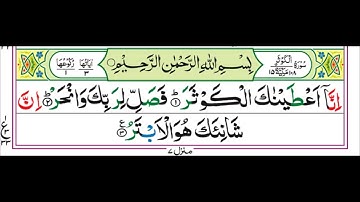 سورة الكوثر ١٠٨ مكية ١٥
بِسْمِ اللّٰهِ الرَّحْمٰنِ الرَّحِيْمِ
اٰيَاتُهَا ٣ رُكُوْعُهَا ١
اِنَّاۤ اَعْطَيْنٰكَ الْكَوْثَرَ ۝١ فَصَلِّ لِرَبِّكَ وَانْحَرْ ۝٢ اِنَّ
شَانِئَكَ هُوَ الْاَبْتَرُ ۝٣
منزل ٧